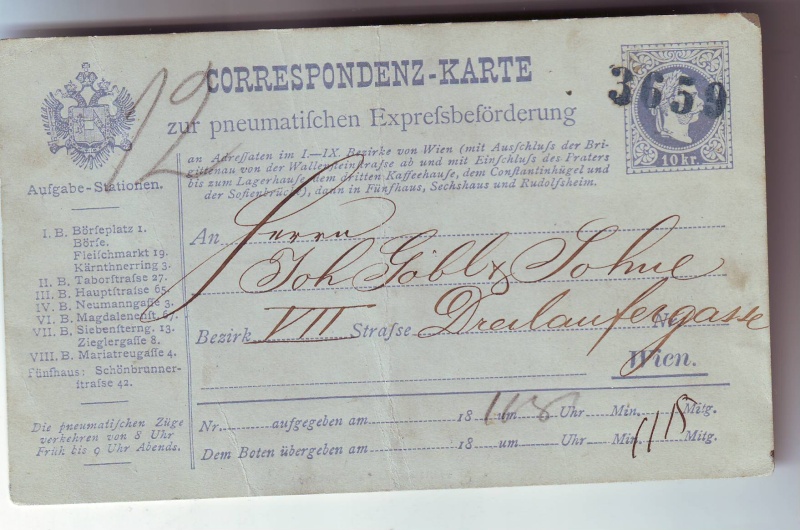 CORRESPONDENZ-KARTE
zur pneumatiſchen Expreſsbeförderung
12
3659
10 kr.
an Adreſſaten im I.—IX. Bezirke von Wien (mit Ausſchluſs der Bri-
gittenau von der Wallenſteinſtraſse ab und mit Einſchluſs des Praters
bis zum Lagerhauſe, dem dritten Kaffeehauſe, dem Conſtantinhügel und
der Sofienbrücke), dann in Fünfhaus, Sechshaus und Rudolfsheim.
Aufgabe-Stationen.
I. B. Börſeplatz 1.
Börſe.
Fleiſchmarkt 19.
Kärnthnerring 3.
II. B. Taborſtraſse 27.
III. B. Hauptſtraſse 65.
IV. B. Neumanngaſſe 3.
VI. B. Magdalenenſt. 67.
VII. B. Siebenſterng. 13.
Zieglergaſſe 8.
VIII. B. Mariatreugaſſe 4.
Fünfhaus: Schönbrunner-
ſtraſse 42.
Die pneumatiſchen Züge
verkehren von 8 Uhr
Früh bis 9 Uhr Abends.
An Herrn
Joh Göbl & Sohne
Bezirk VII Straſse Dreilaufergasse Nr.
Wien.
Nr. aufgegeben am 18 um Uhr Min. Mitg.
Dem Boten übergeben am 18 um Uhr Min. Mitg.